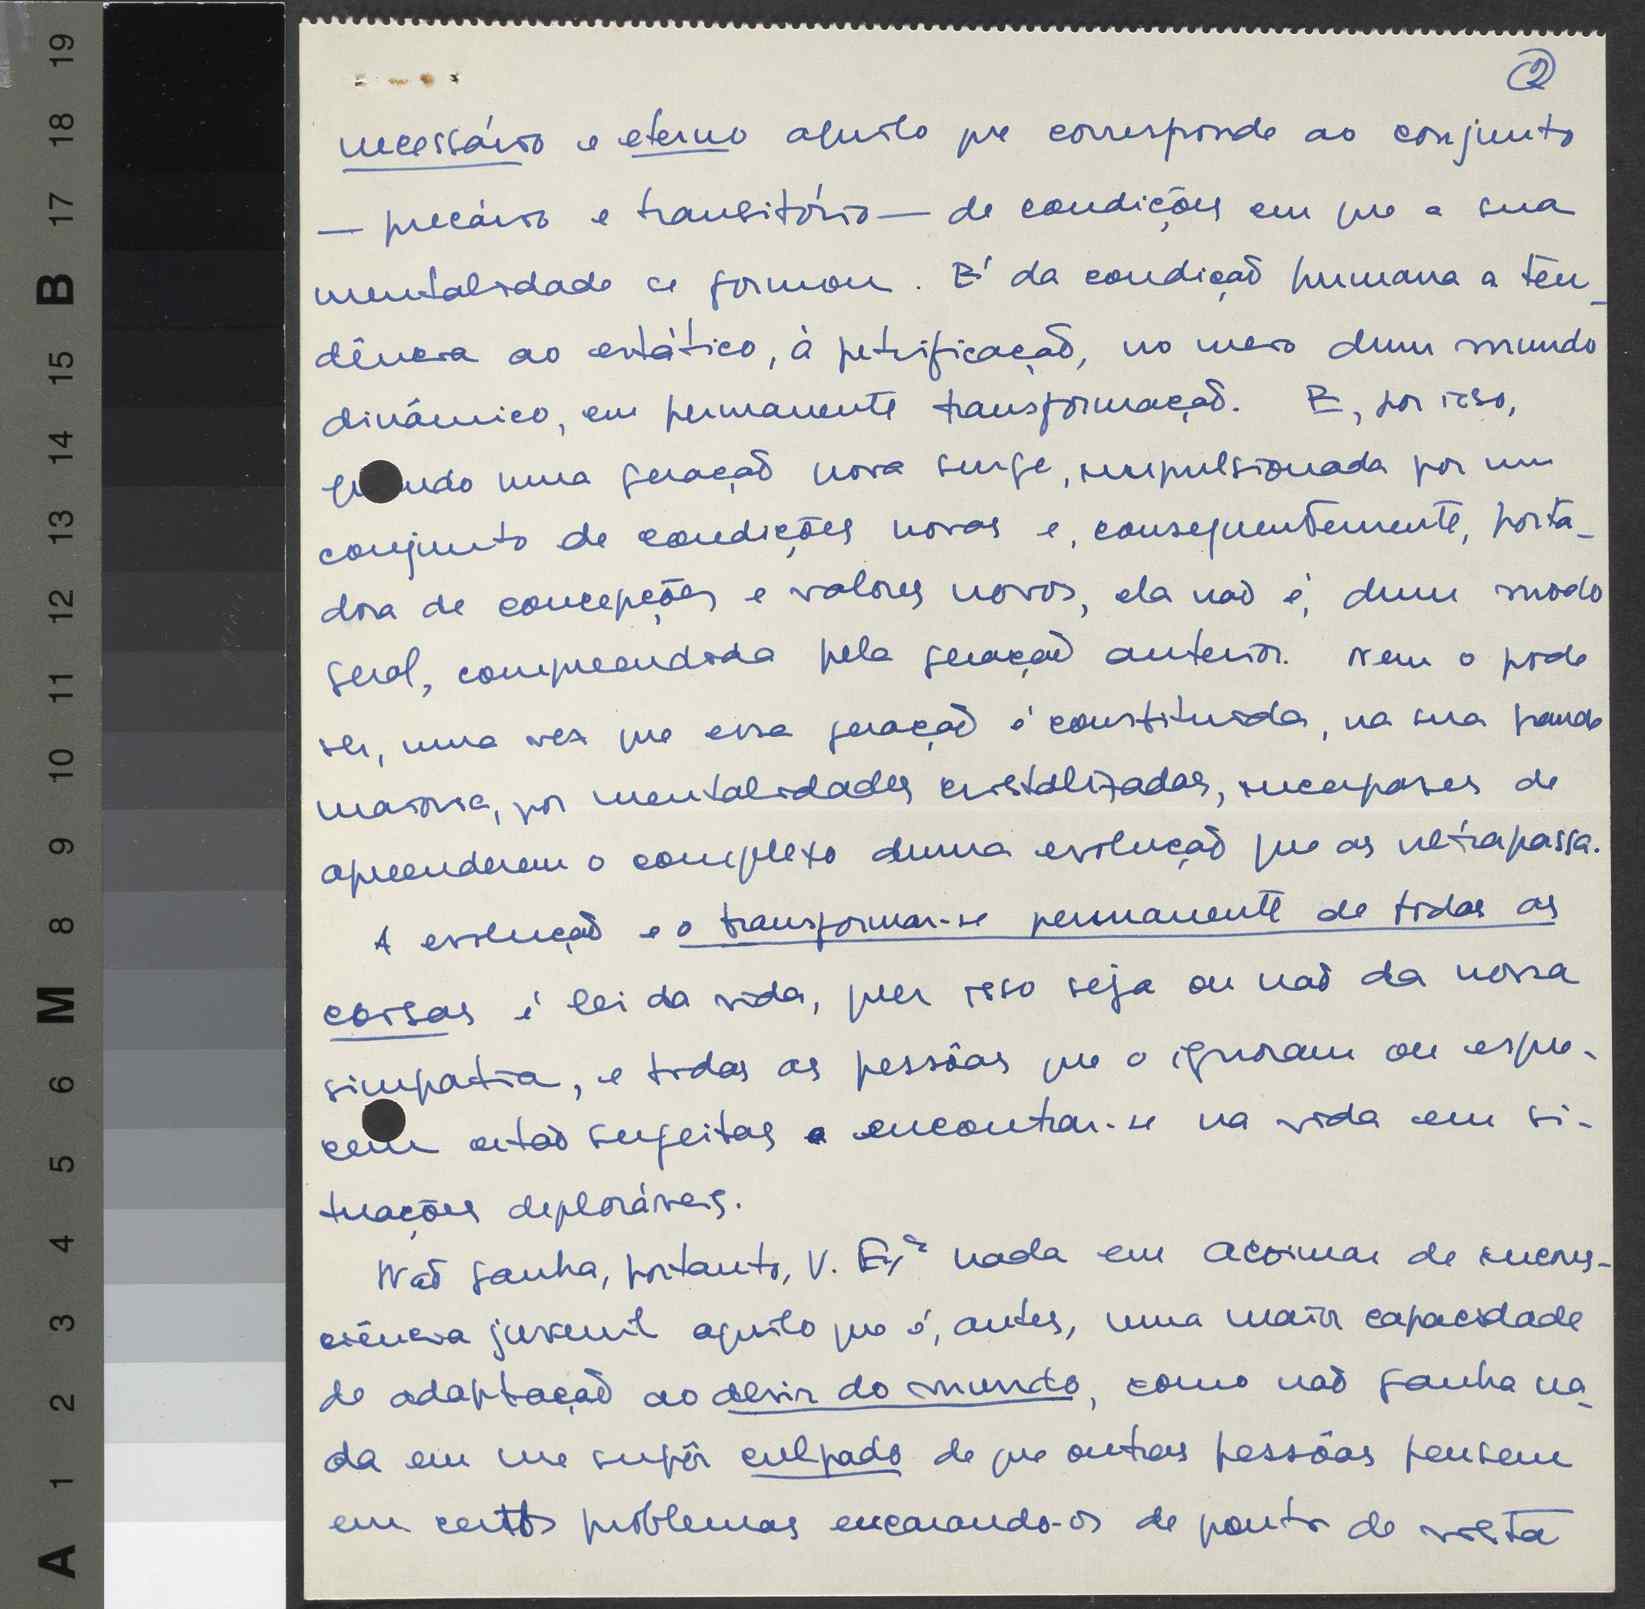 2
necessário e eterno aquilo que corresponde ao conjunto
— precário e transitório — de condições em que a sua
mentalidade se formou. É da condição humana a ten-
dência ao estático, à petrificação, no meio dum mundo
dinâmico, em permanente transformação. E, por isso,
quando uma geração nova surge, impulsionada por um
conjunto de condições novas e, consequentemente, porta-
dora de concepções e valores novos, ela não é, dum modo
geral, compreendida pela geração anterior. Nem o pode
ser, uma vez que essa geração é constituida, na sua grande
maioria, por mentalidades cristalizadas, incapazes de
apreenderem o complexo duma evolução que as ultrapassa.
A evolução e o transformar-se permanente de todas as
coisas é lei da vida, quer isso seja ou não da nossa
simpatia, e todas as pessôas que o ignoram ou esque-
cem estão sugeitas a encontrar-se na vida em si-
tuações deploráveis.
Não ganha, portanto, V. Exª nada em acoimar de incons-
ciência juvenil aquilo que é, antes, uma maior capacidade
de adaptação ao devir do mundo, como não ganha na-
da em me supôr culpado de que outras pessôas pensem
em certos problemas encarando-os de ponto de vista
19
18
17
B
15
14
13
12
11
10
9
8
M
6
5
4
3
2
1
A